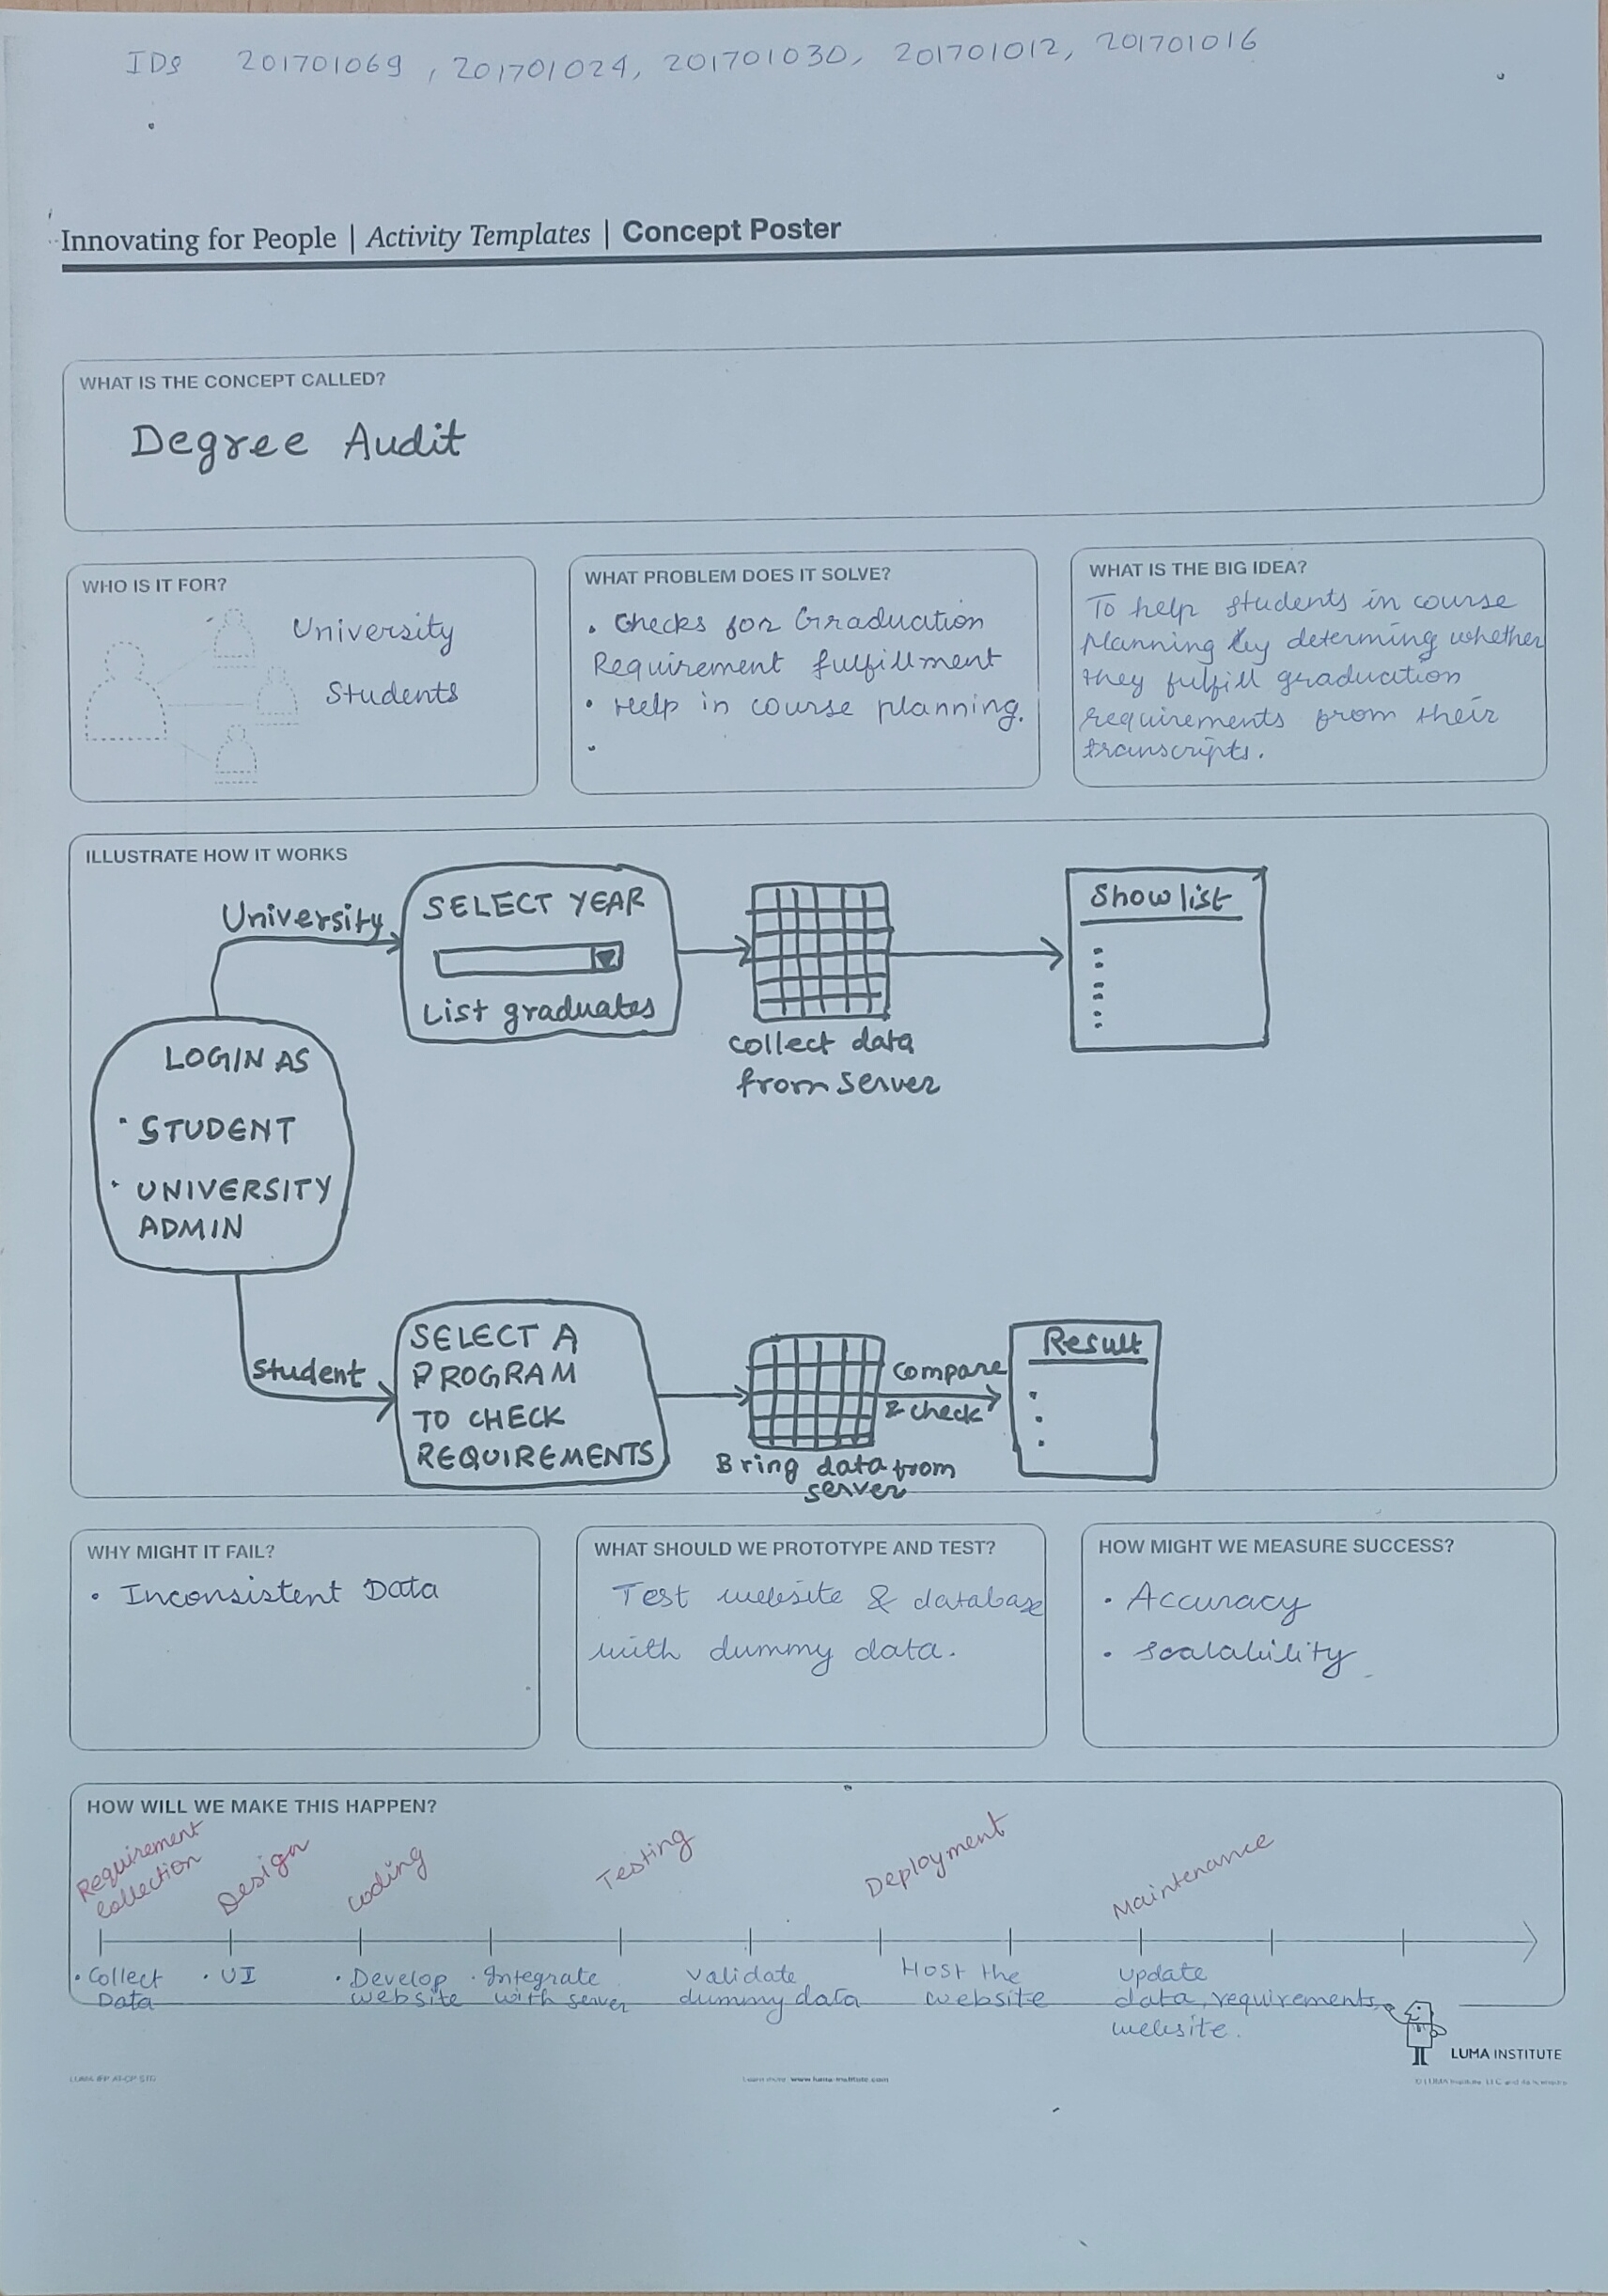 IDs 201701069, 201701024, 201701030, 201701012, 201701016
Innovating for People | Activity Templates | Concept Poster
WHAT IS THE CONCEPT CALLED?
Degree Audit
WHO IS IT FOR?
University
Students
WHAT PROBLEM DOES IT SOLVE?
• Checks for Graduation
Requirement fulfillment
• Help in course planning.
WHAT IS THE BIG IDEA?
To help students in course
planning by determing whether
they fulfill graduation
requirements from their
transcripts.
ILLUSTRATE HOW IT WORKS
University
SELECT YEAR
List graduates
collect data
from server
Show list
LOGIN AS
• STUDENT
• UNIVERSITY
ADMIN
Student
SELECT A
PROGRAM
TO CHECK
REQUIREMENTS
Bring data from
server
Compare
& check
Result
WHY MIGHT IT FAIL?
• Inconsistent Data
WHAT SHOULD WE PROTOTYPE AND TEST?
Test website & database
with dummy data.
HOW MIGHT WE MEASURE SUCCESS?
• Accuracy
• Scalability
HOW WILL WE MAKE THIS HAPPEN?
Requirement
collection
Design
Coding
Testing
Deployment
Maintenance
• Collect
Data
• UI
• Develop
website
• Integrate
with server
Validate
dummy data
Host the
website
Update
data, requirements,
website.
LUMA INSTITUTE
www.luma-institute.com